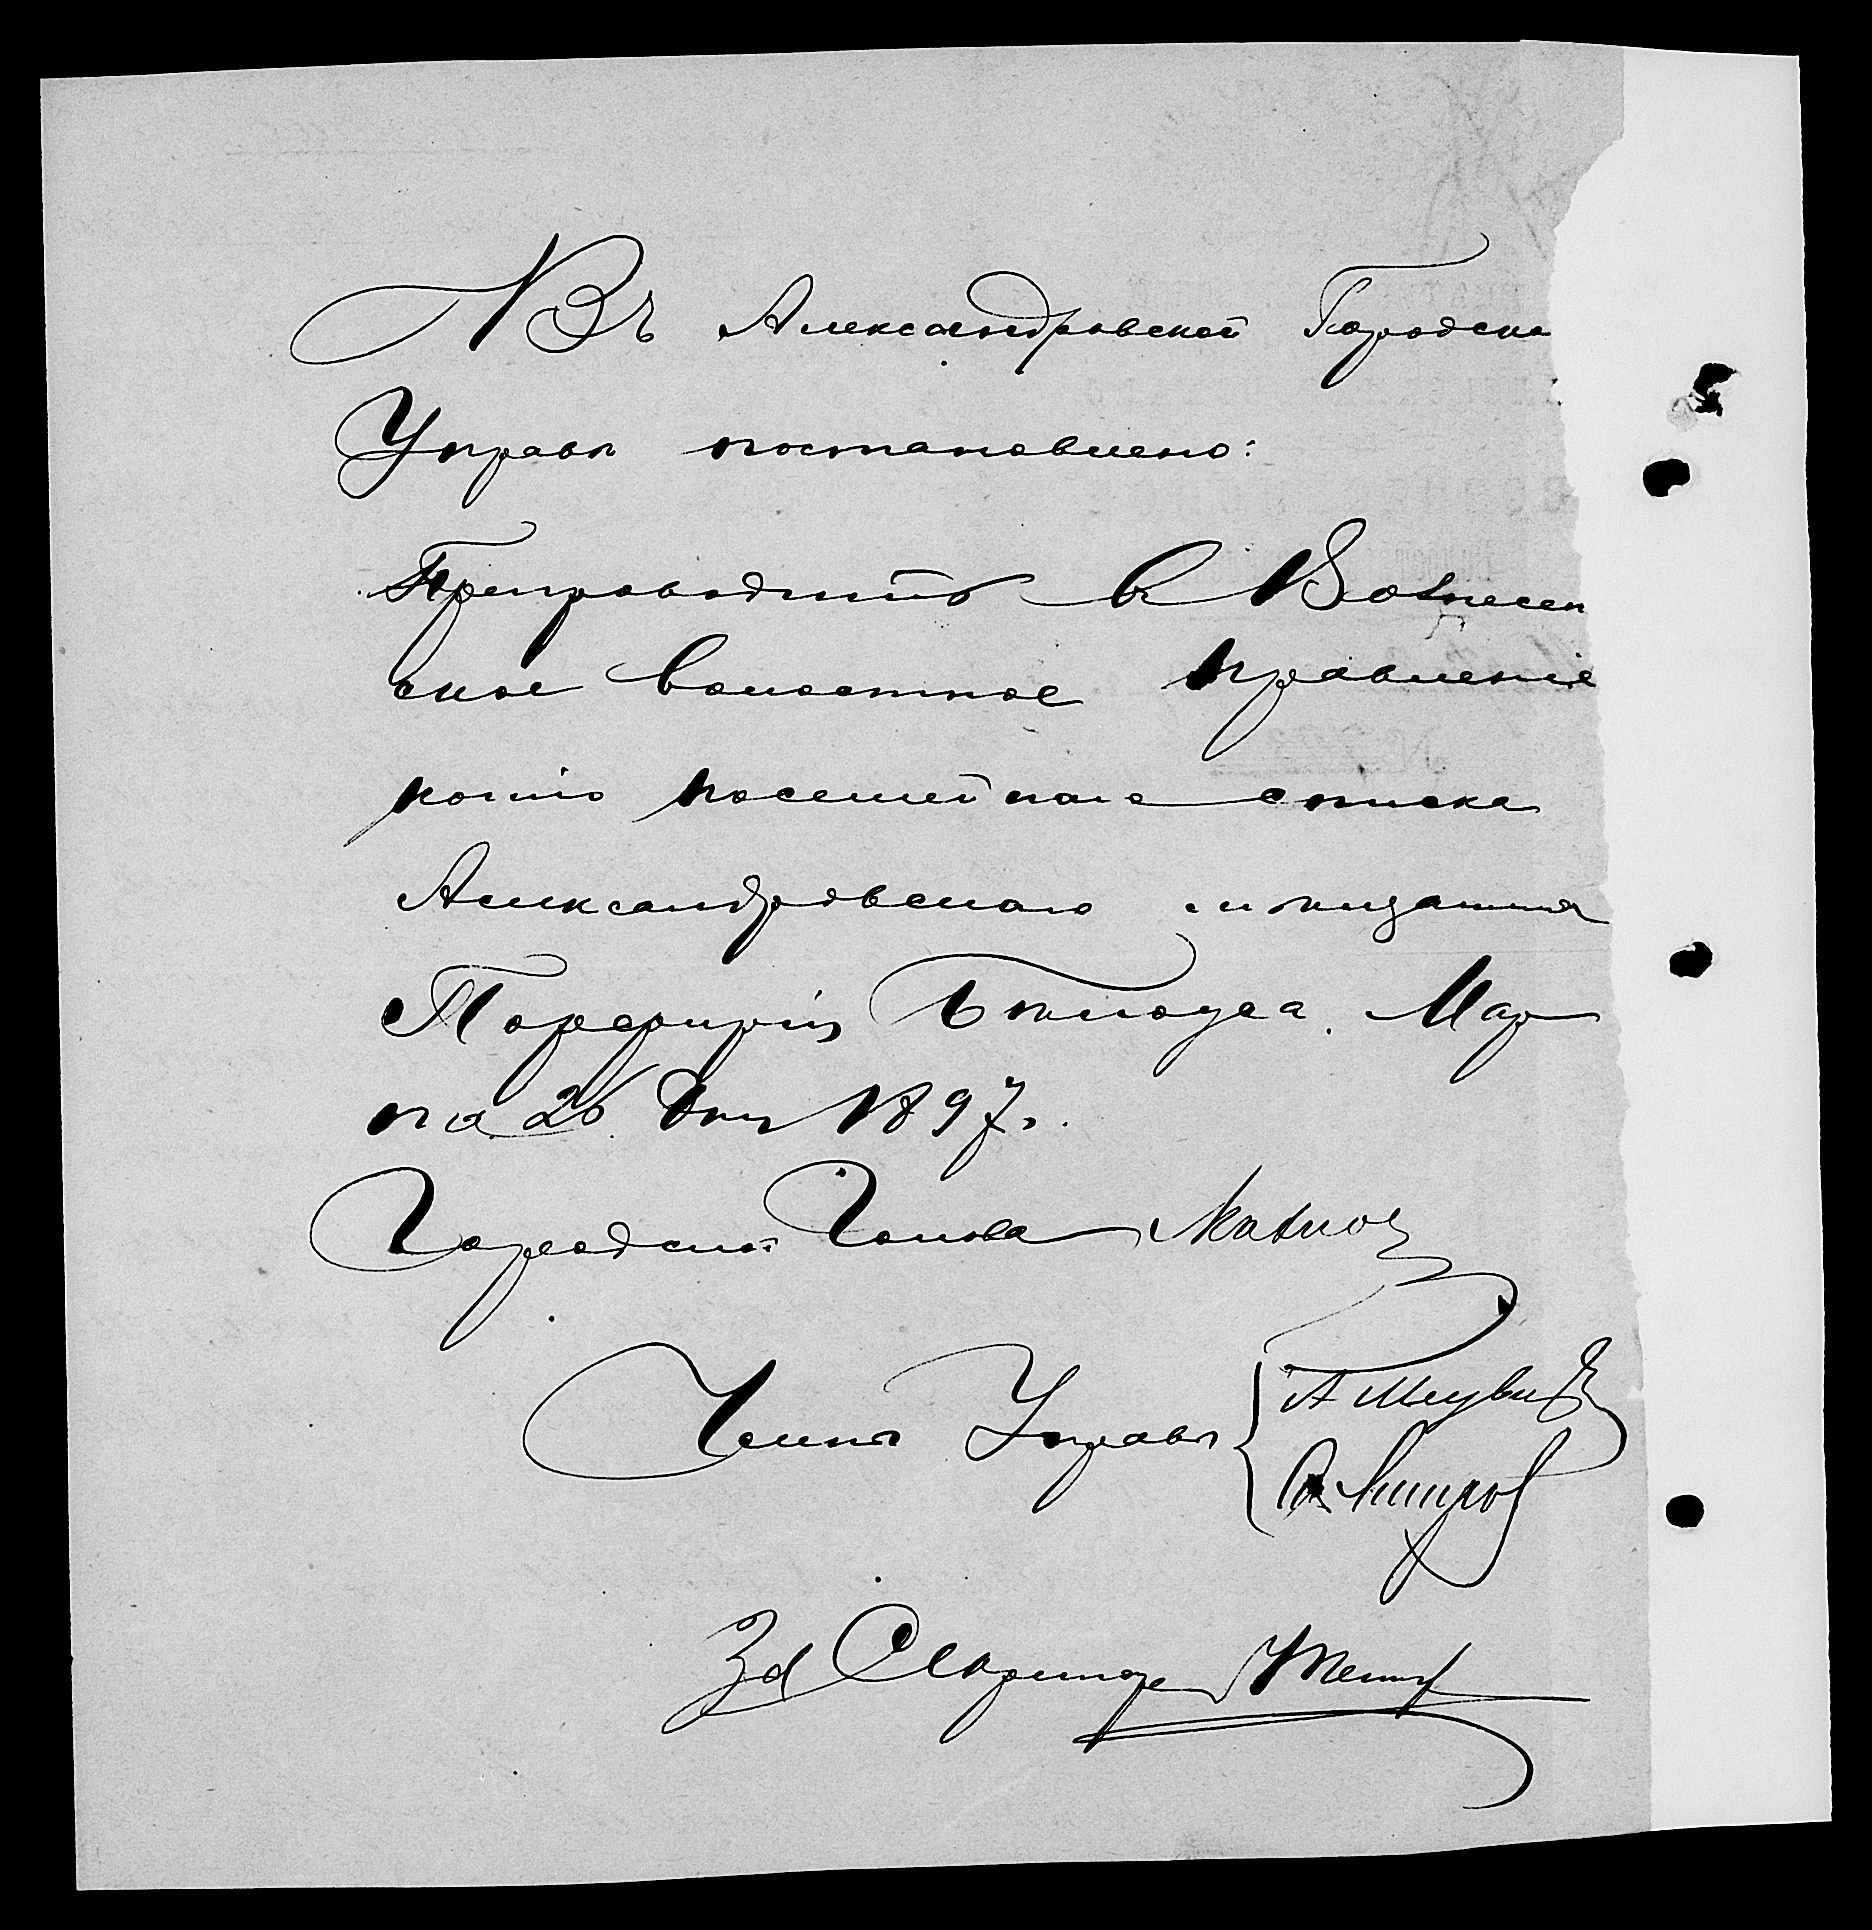 Въ Александровской Городско
Управѣ постановлено:
Препроводить въ Вознесен
ское волостное правленіе
копію посемейнаго списка
Александровскаго мѣщанина
Порфирія Мар
та 26 дня 1897 г.
Городской Голова
Члены Управы
А
Секретаря